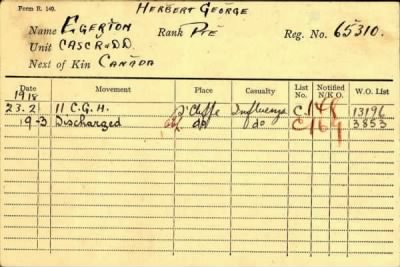 Form R. 149.
HERBERT GEORGE
Name EGERTON Rank Pte Reg. No. 65310.
Unit CASC R&DD.
Next of Kin CANADA
Date Movement Place Casualty List No. Notified N/K O. W.O. List
1918
23.2 11 C.G.H. S'Cliffe Influenza C.148 13196
19-3 Discharged do do C164 3853